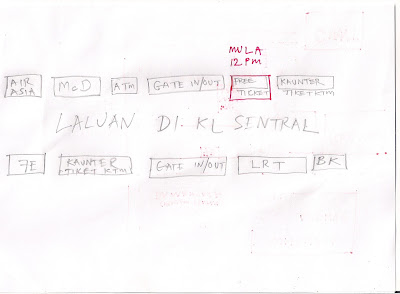 MULA
12 PM
AIR ASIA
McD
ATM
GATE IN/OUT
FREE TICKET
KAUNTER TIKET KTM
LALUAN DI KL SENTRAL
7E
KAUNTER TIKET KTM
GATE IN/OUT
LRT
BK